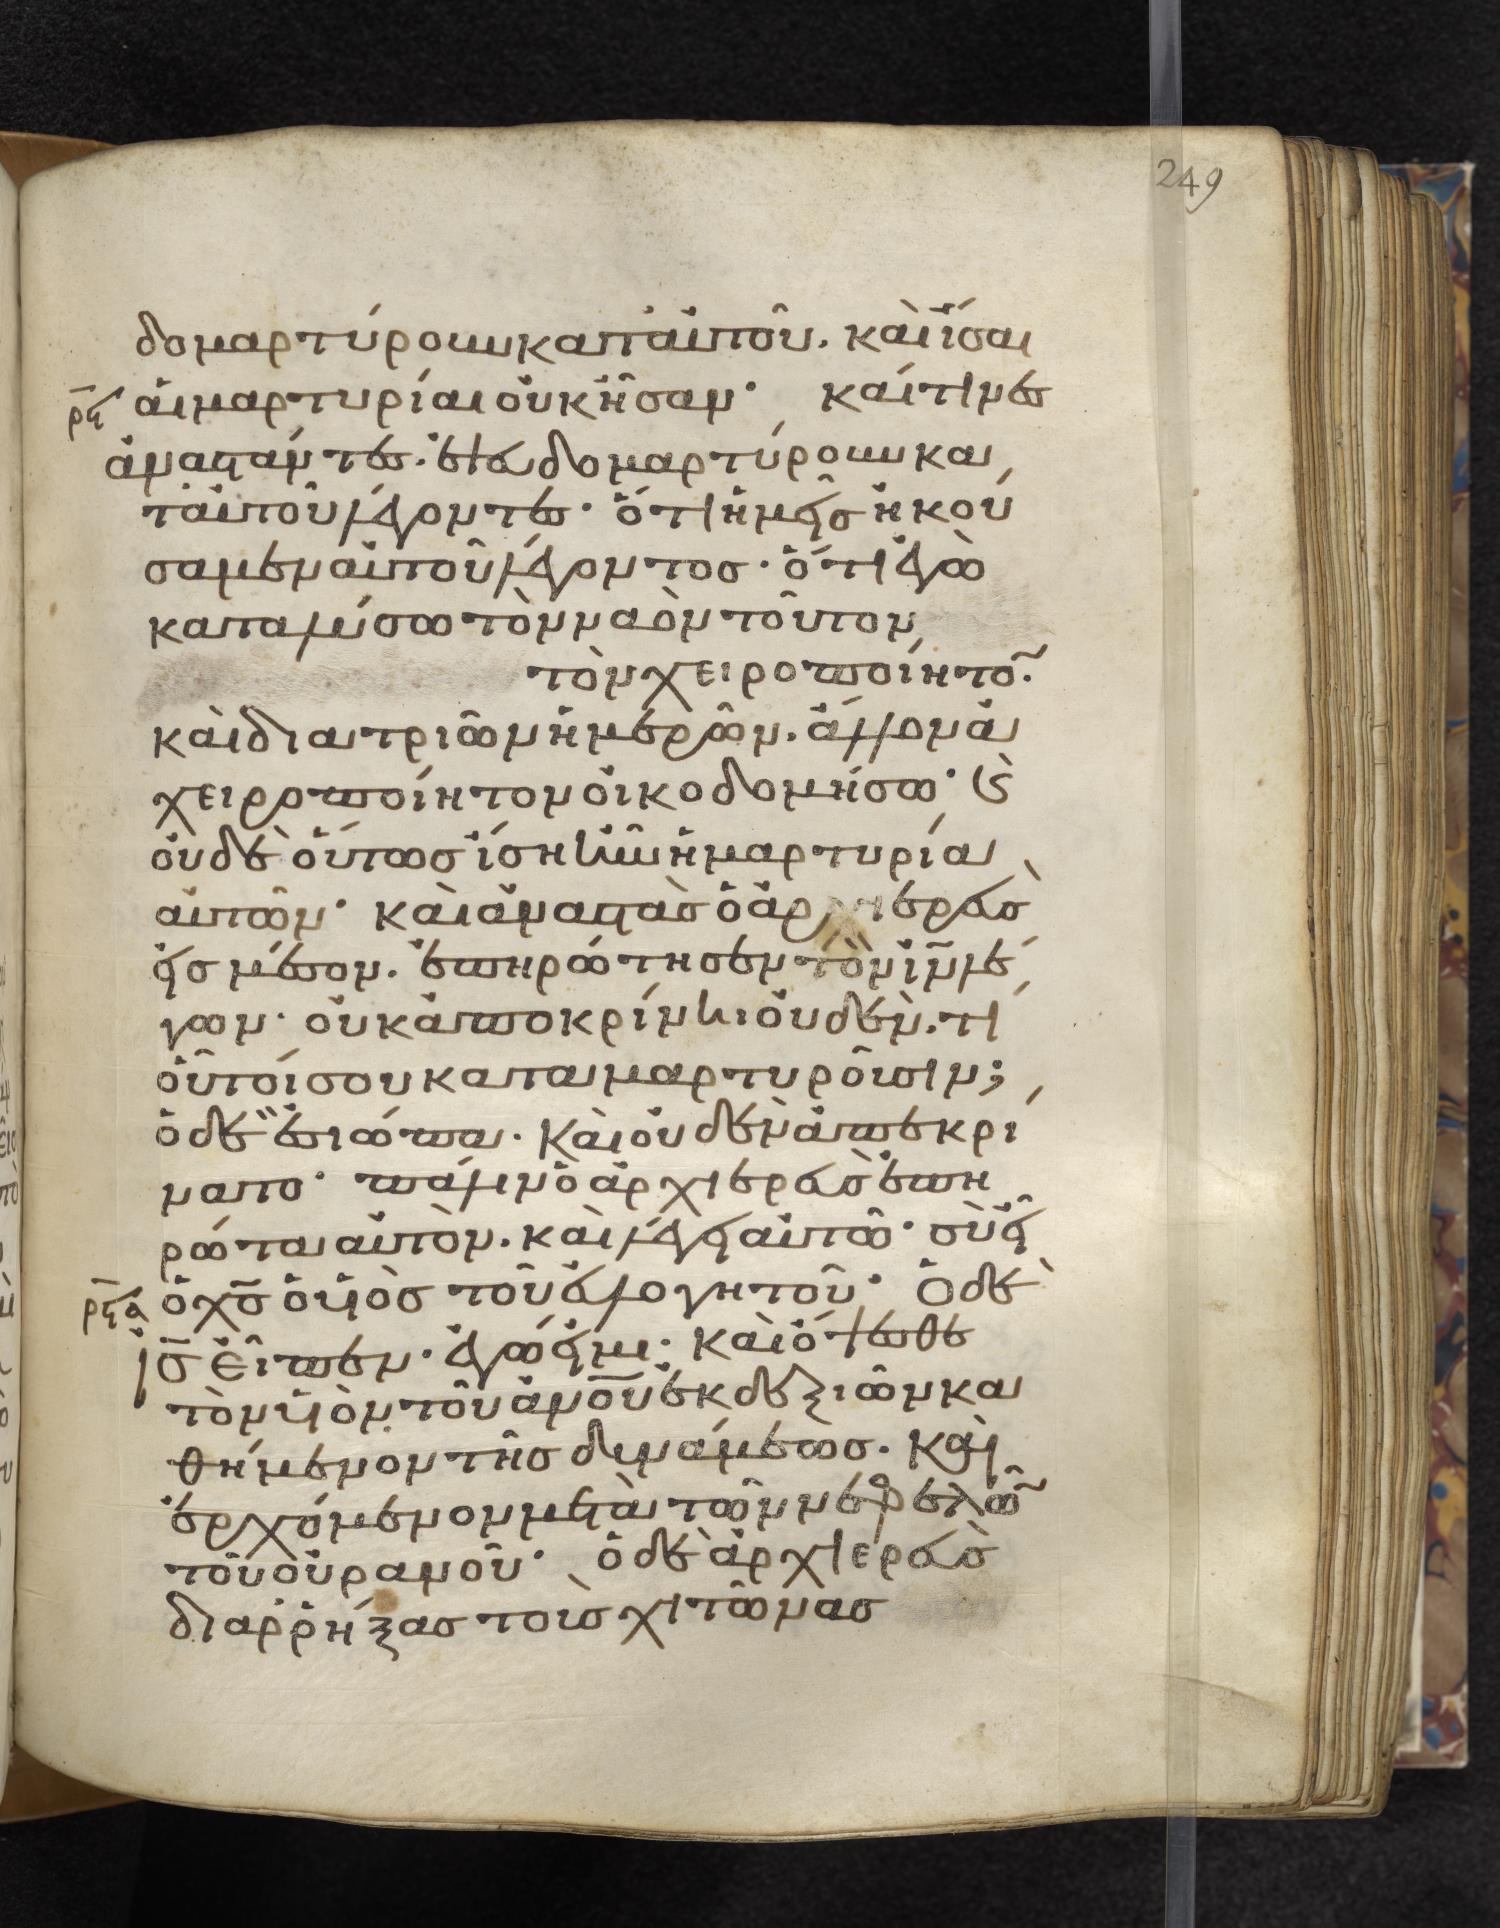 249
δομαρτύρουν κατ' αὐτοῦ. καὶ ἴσαι
ρϟ αἱ μαρτυρίαι οὐκ ἦσαν· καί τινες
ἀναστάντες. ἐψευδομαρτύρουν κα
τ' αὐτοῦ λέγοντες· ὅτι ἡμεῖς ἠκού
σαμεν αὐτοῦ λέγοντος· ὅτι ἐγὼ
καταλύσω τὸν ναὸν τοῦτον
τὸν χειροποίητο̅.
καὶ διὰ τριῶν ἡμερῶν. ἄλλον ἀ
χειροποίητον οἰκοδομήσω· ϗ
οὐδὲ οὕτως ἴση ἦν ἡ μαρτυρία
αὐτῶν· καὶ ἀναστὰς ὁ ἀρχιερεὺς
εἰς μέσον. ἐπηρώτησεν τὸν ι̅ν̅ λέ
γων· οὐκ ἀποκρίνῃ οὐδέν. τί
οὗτοί σου καταμαρτυροῦσιν;
ὁ δὲ ἐσιώπα. καὶ οὐδὲν ἀπεκρί
νατο· πάλιν ὁ ἀρχιερεὺς ἐπη
ρώτα αὐτὸν. καὶ λέγει αὐτῷ· σὺ εἶ
ρϟα ὁ χ̅ς̅ ὁ υἱὸς τοῦ εὐλογητοῦ· Ὁ δὲ
ι̅ς̅ εἶπεν· ἐγώ εἰμι. καὶ ὄψεσθε
τὸν υἱὸν τοῦ α̅ν̅ο̅υ̅ ἐκ δεξιῶν κα
θήμενον τῆς δυνάμεως. καὶ
ἐρχόμενον μετὰ τῶν νεφελῶ̅
τοῦ οὐρανοῦ· ὁ δὲ ἀρχιερεὺς
διαῤῥήξας τοὺς χιτῶνας